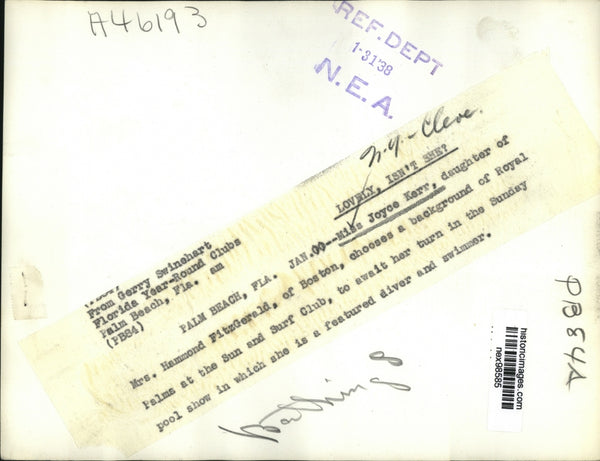 A46193
REF. DEPT
1-31'38
N.E.A.
N.Y. - Cleve.
LOVELY, ISN'T SHE?
From Gerry Swinehart
Florida Year-Round Clubs
Palm Beach, Fla. am
(PB84)
PALM BEACH, FLA. JAN.00--Miss Joyce Kerr, daughter of
Mrs. Hammond FitzGerald, of Boston, chooses a background of Royal
Palms at the Sun and Surf Club, to await her turn in the Sunday
pool show in which she is a featured diver and swimmer.
Bathing 8
PB84A
historicimages.com
nex98585